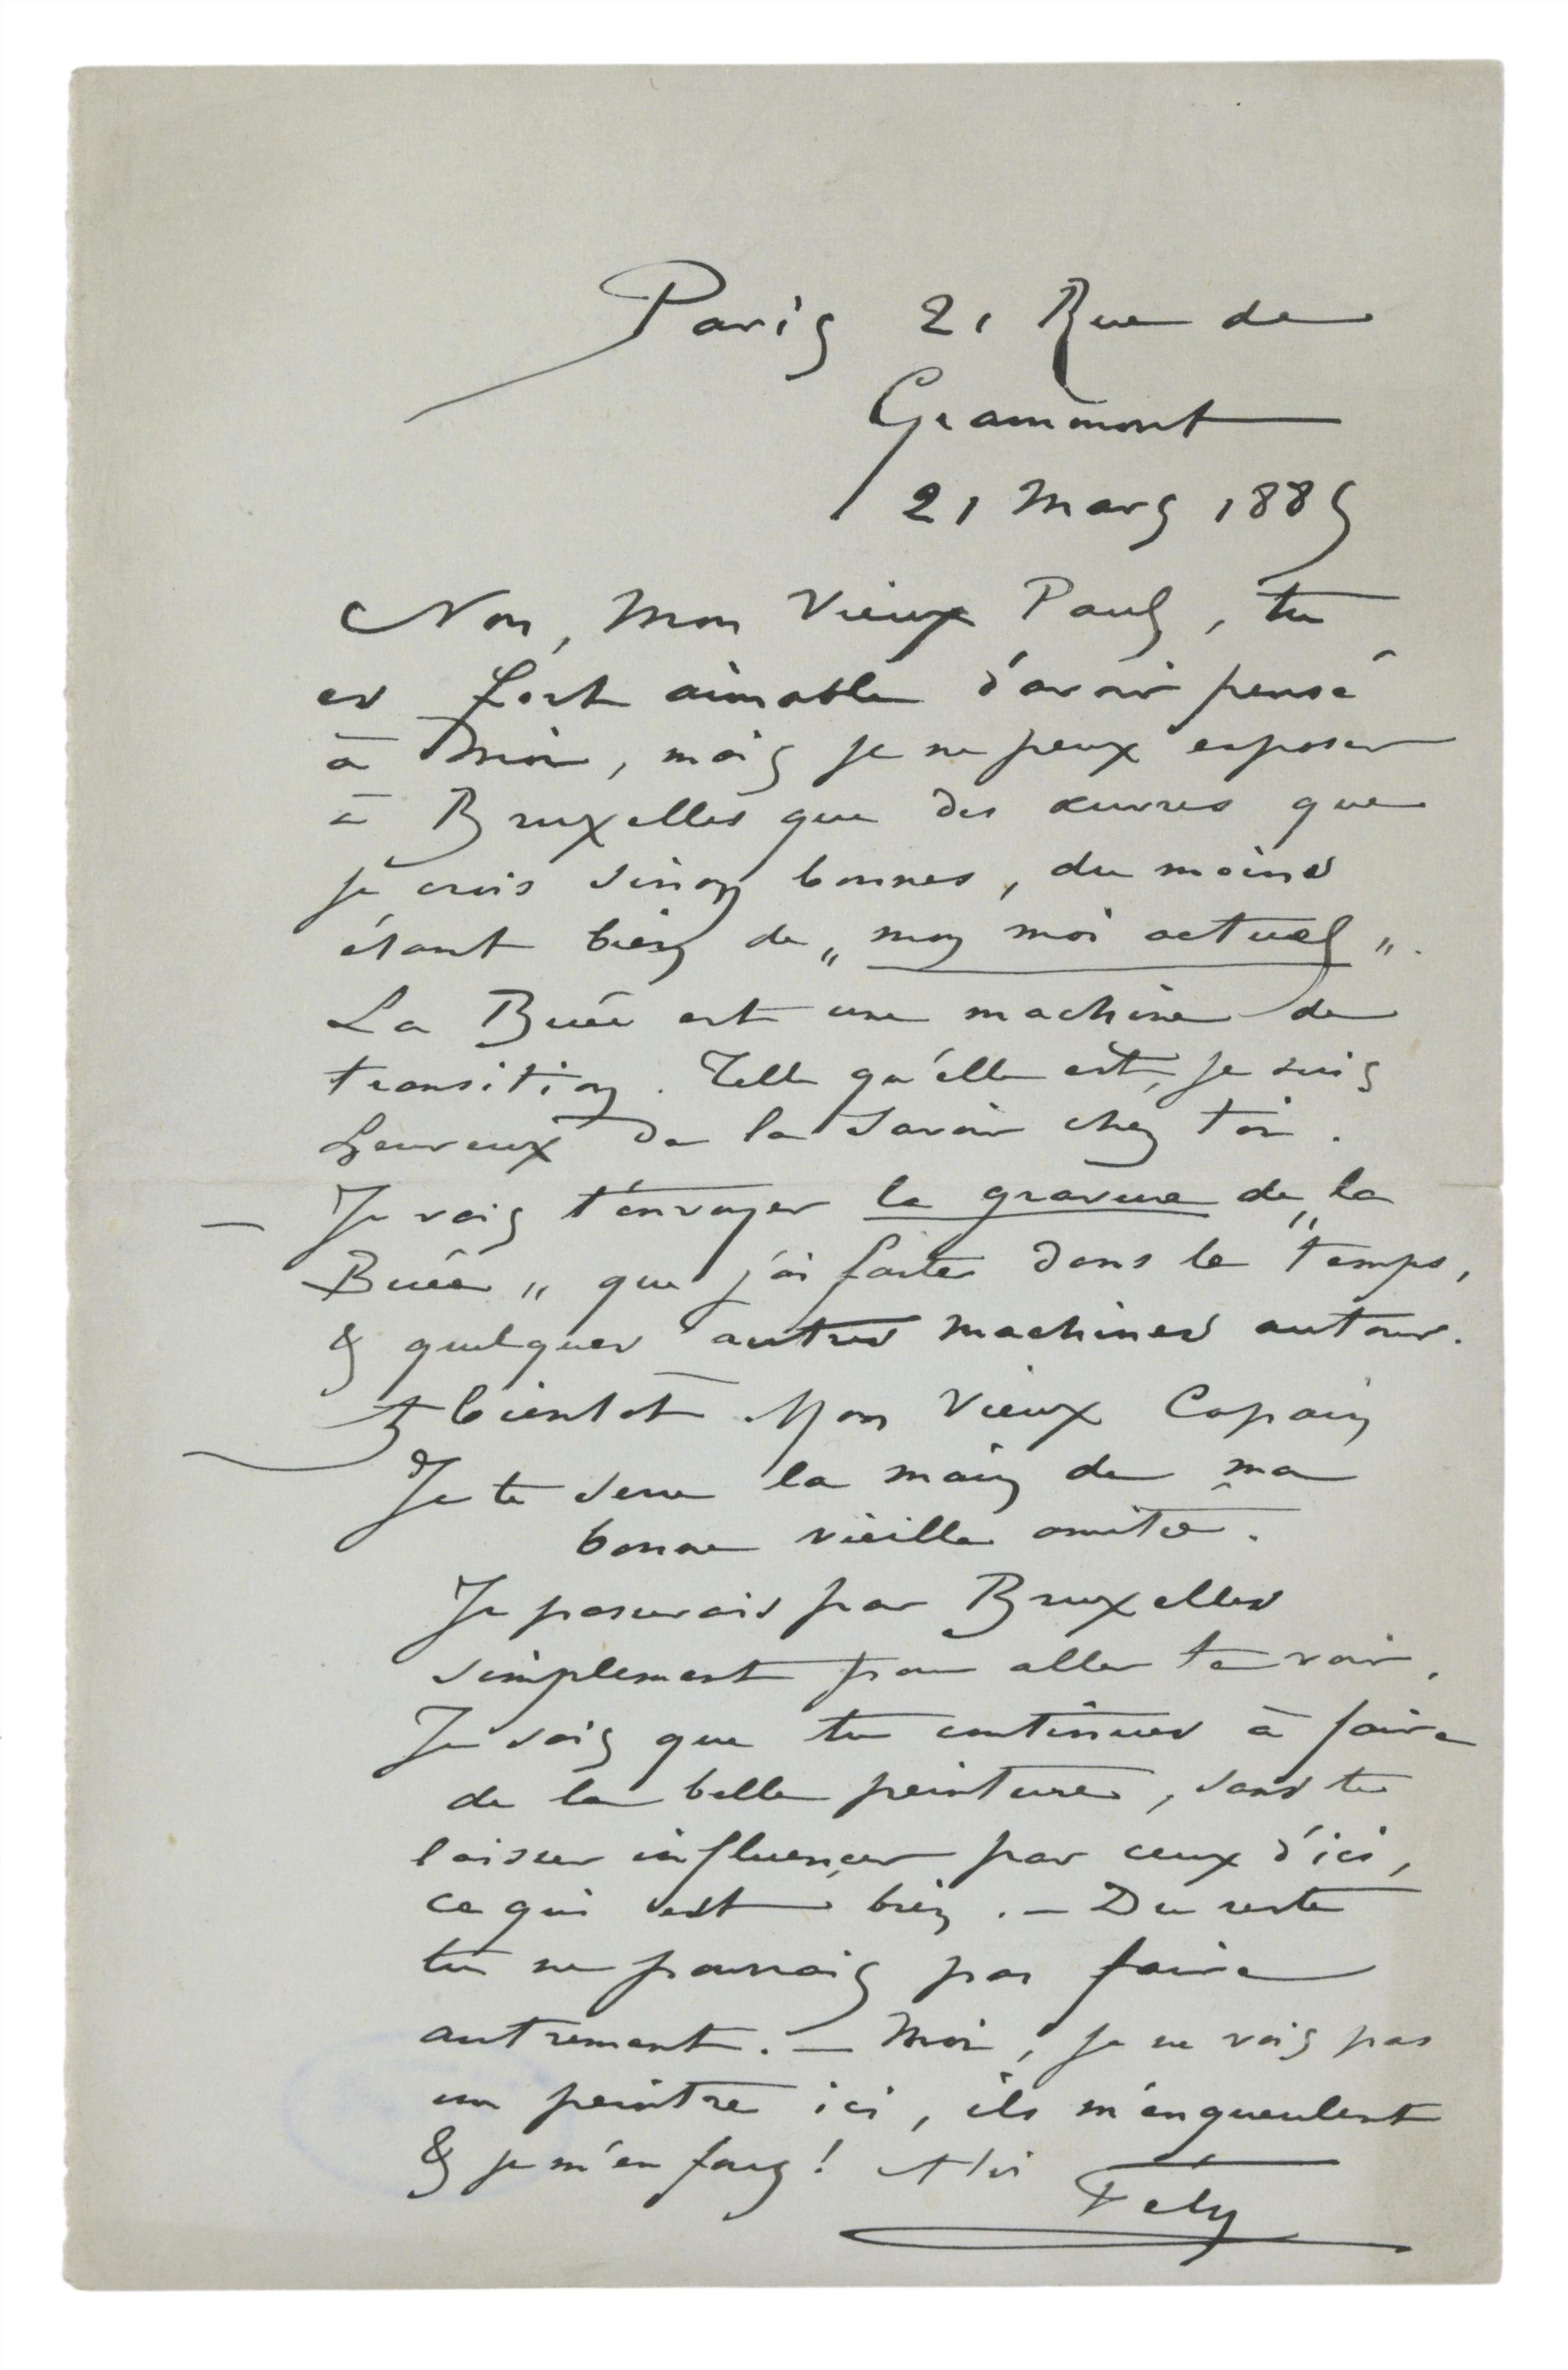 Paris 21 Rue de
Grammont
21 Mars 1885
Non, Mon Vieux Paul, tu
es fort aimable d'avoir pensé
à Moi, mais je ne peux exposer
à Bruxelles que des œuvres que
je crois sinon bonnes, du moins
étant bien de „ mon moi actuel „.
La Buée est une machine de
transition. Telle qu'elle est, je suis
heureux de la savoir chez toi.
— Je vais t'envoyer la gravure de „ la
Buée „ que j'ai faite dans le temps,
& quelques autres machines autour.
A bientôt Mon Vieux Copain
Je te serre la main de ma
bonne vieille amitié.
Je passerais par Bruxelles
simplement pour aller te voir.
Je sais que tu continues à faire
de la belle peinture, sans te
laisser influencer par ceux d'ici,
ce qui est bien. — Du reste
tu ne pourrais pas faire
autrement. — Moi, je ne vois pas
un peintre ici, ils m'engueulent
& je m'en fous! A toi
Fély